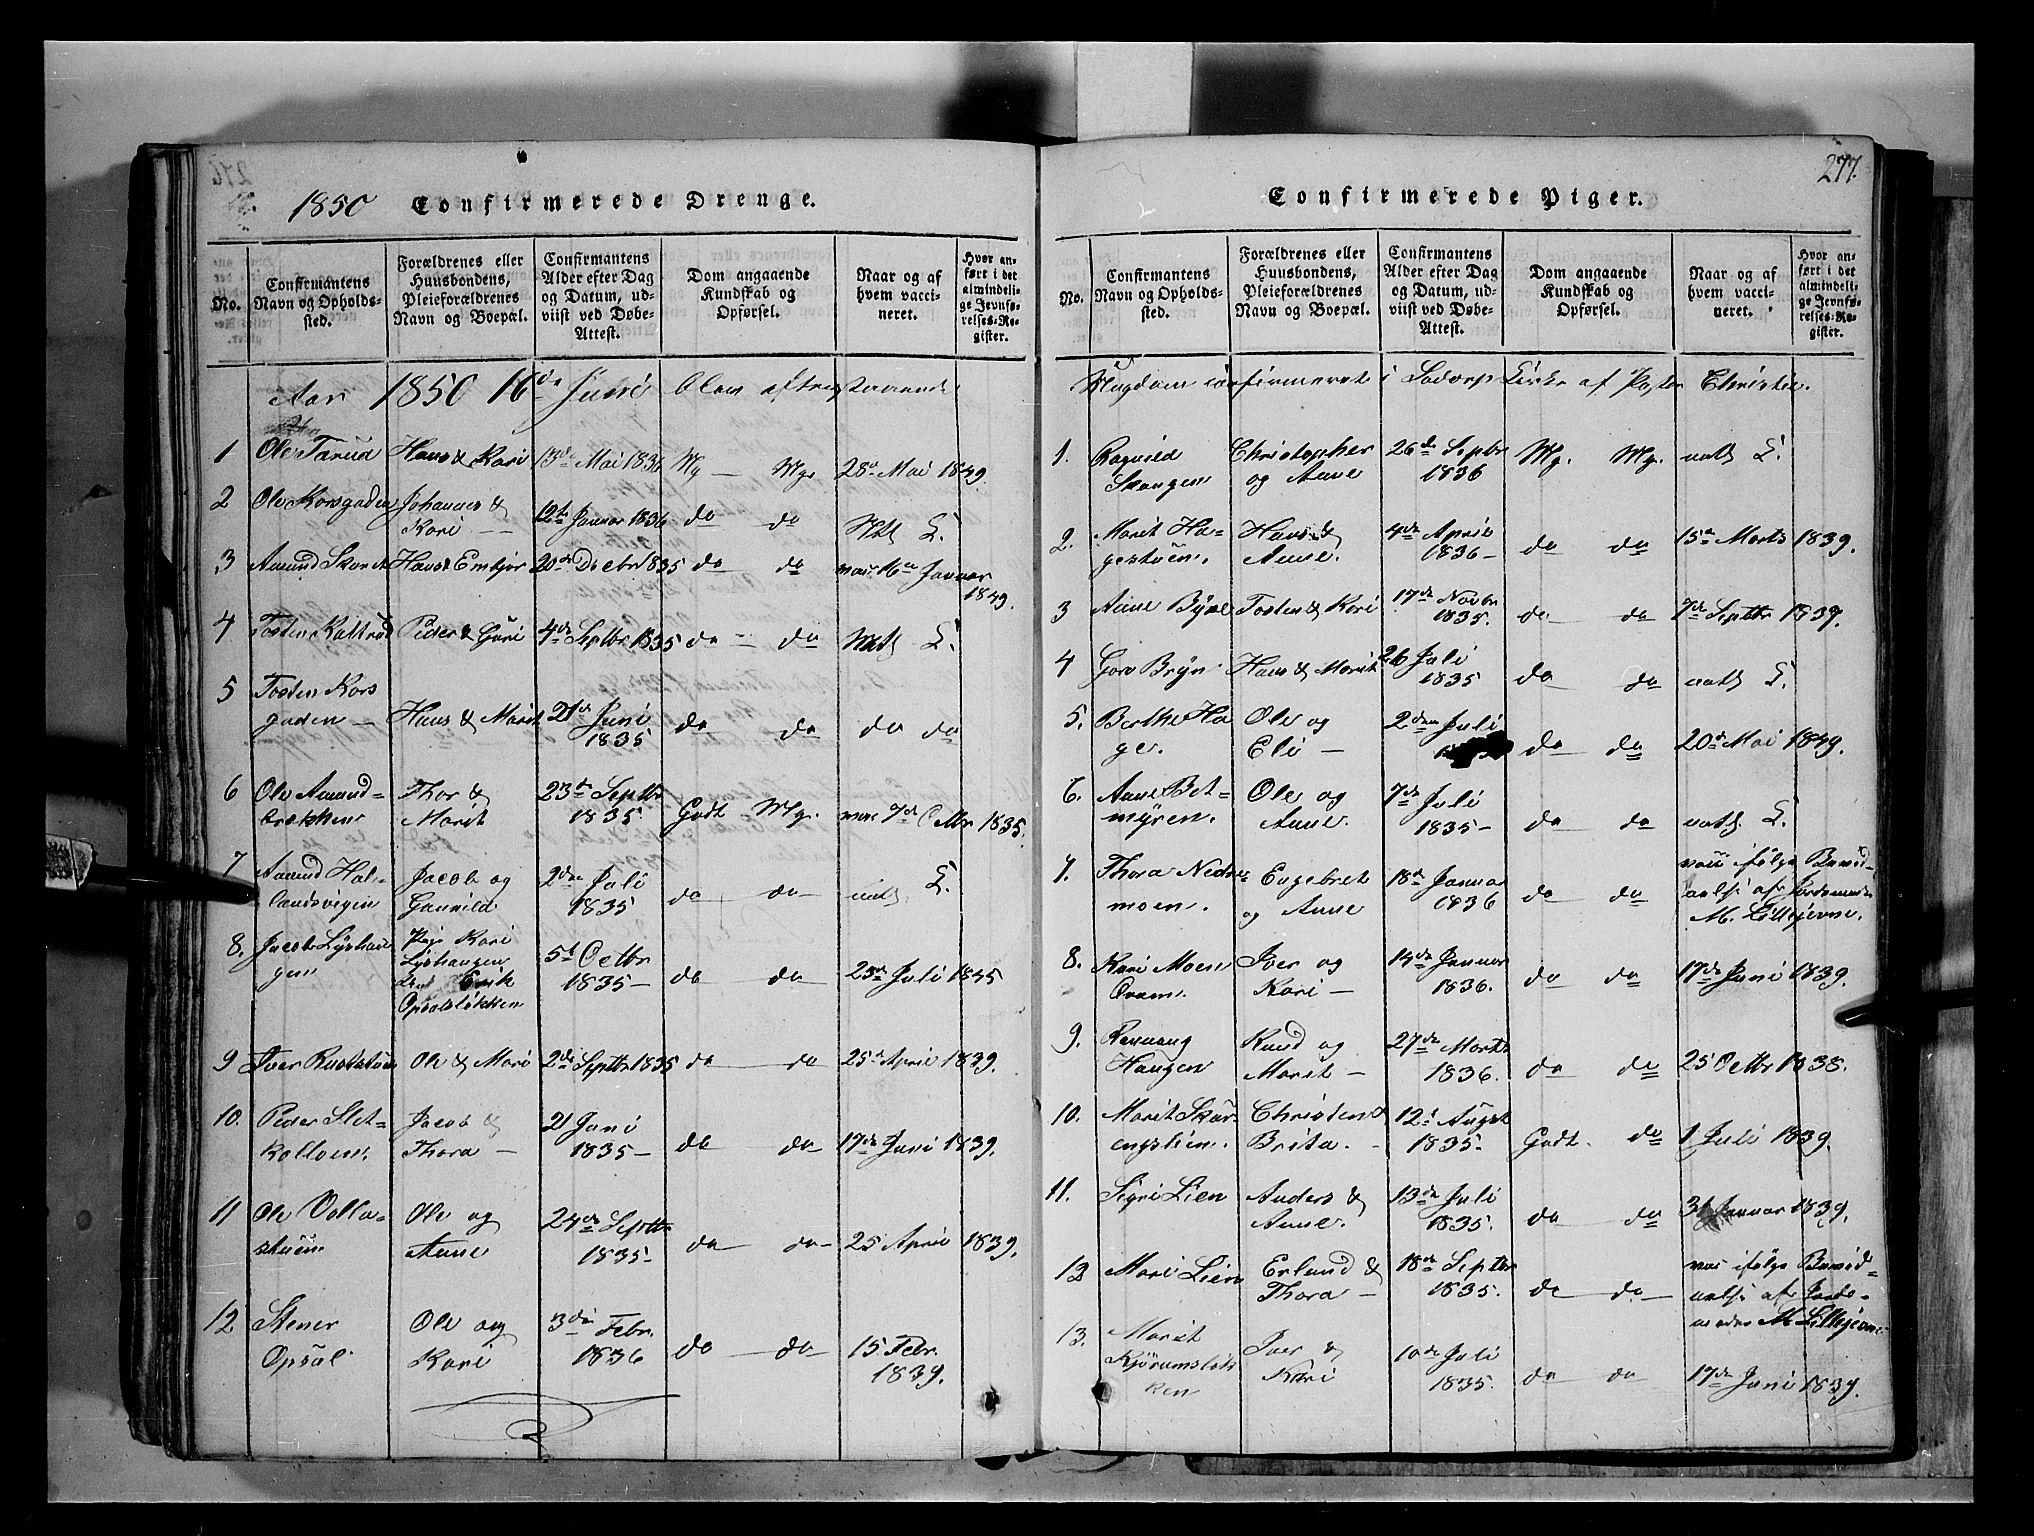 277.
1850 Confirmerede Drenge.
No.
Confirmantens Navn og Opholdssted.
Forældrenes eller Huusbondens, Pleieforældrenes Navn og Boepæl.
Confirmantens Alder efter Dag og Datum, udviist ved Døbe-Attest.
Dom angaaende Kundskab og Opførsel.
Naar og af hvem vaccineret.
Hvor anført i det almindelige Jevnførelses-Register.
Aar 1850 16de Juni blev
1 Ole Tarud Hans & Kari 13de Mai 1836 Mg — Mg 28de Mai 1849.
2 Ole Korsgaden Johannes & Kari — 12te Januar 1836 do do Natt. L.
3 Amund Hans & Embjør 20de Decbr 1835 do do 16de Januar 1849.
4 Tosten Peder & Guri 4de Septbr 1835 do — do Natt. L.
5 Tosten Korsgaden — Hans & Marit 21de Juni 1835 do do do do
6 Ole Amundbrækken Thor & Marit 23de Septbr 1835. Godt Mg. 7de Octbr 1835.
7 Amund Jacob og Gunnild 2den Juli 1835 do do natt. L.
8. Jacob Kari Erik Opsalsløkken 5te Octbr 1835 — do do Juli 1845
9 Iver Ruststuen Ole & Mari 2de Septbr 1835 do do 25de April 1839.
10. Peder Sletkolloen. Jacob & Thora — 21 Juni 1835 — do do 17de Juni 1839.
11 Ole stuen Ole og Anne 24de Septbr 1835 — do do — 25 April 1839.
12 Stener Opsal Ole og Kari 3die Febr. 1836 do do 15 Febr. 1839.
Confirmerede Piger.
No.
Confirmantens Navn og Opholdssted.
Forældrenes eller Huusbondens, Pleieforældrenes Navn og Boepæl.
Confirmantens Alder efter Dag og Datum, udviist ved Døbe-Attest.
Dom angaaende Kundskab og Opførsel.
Naar og af hvem vaccineret.
Hvor anført i det almindelige Jevnførelses-Register.
Ungdom confirmeret i Sødorp Kirke af Pastor Christie.
1. Ragnild Skougen Christopher og Anne 26de Septbr 1836 Mg. Mg. natt. L.
2. Marit Hagestuen. Hans & Anne. 4de April 1836 — do do 15de Marts 1839.
3 Anne Tosten & Kari 17de Novbr 1835. do do 7de Septbr 1839.
4 Goro Bryn Hans & Marit 26 Juli 1835 do do natt. L.
5. Berthe Hage. Ole og Eli — 2den Juli do do 20de Mai 1849.
6. Anne Botmyren. Ole og Anne. 7de Juli 1835 — do do natt. L.
7. Thora moen. Engebret og Anne 18de Januar 1836 do do ifølge af M. Lillejevne.
8. Kari Moen Iver og Kari — 14de Januar 1836. do do 17de Juni 1839.
9. Rønnaug Haugen Knud og Marit — 27de Marts 1836. do do 25 Octbr 1838.
10. Marit Christen & Brita. 12te August 1835. Godt. do 1 Juli 1839.
11. Sigri Lien Anders & Anne. 13de Juli 1835. do do 31 Januar 1839.
12 Mari Lien Erlend & Thora — 18de Septbr 1835. do do ifølge af M. Lillejevne
13. Marit Kjørumsløkken Iver & Kari 10de Juli 1835. do do 17de Juni 1839.